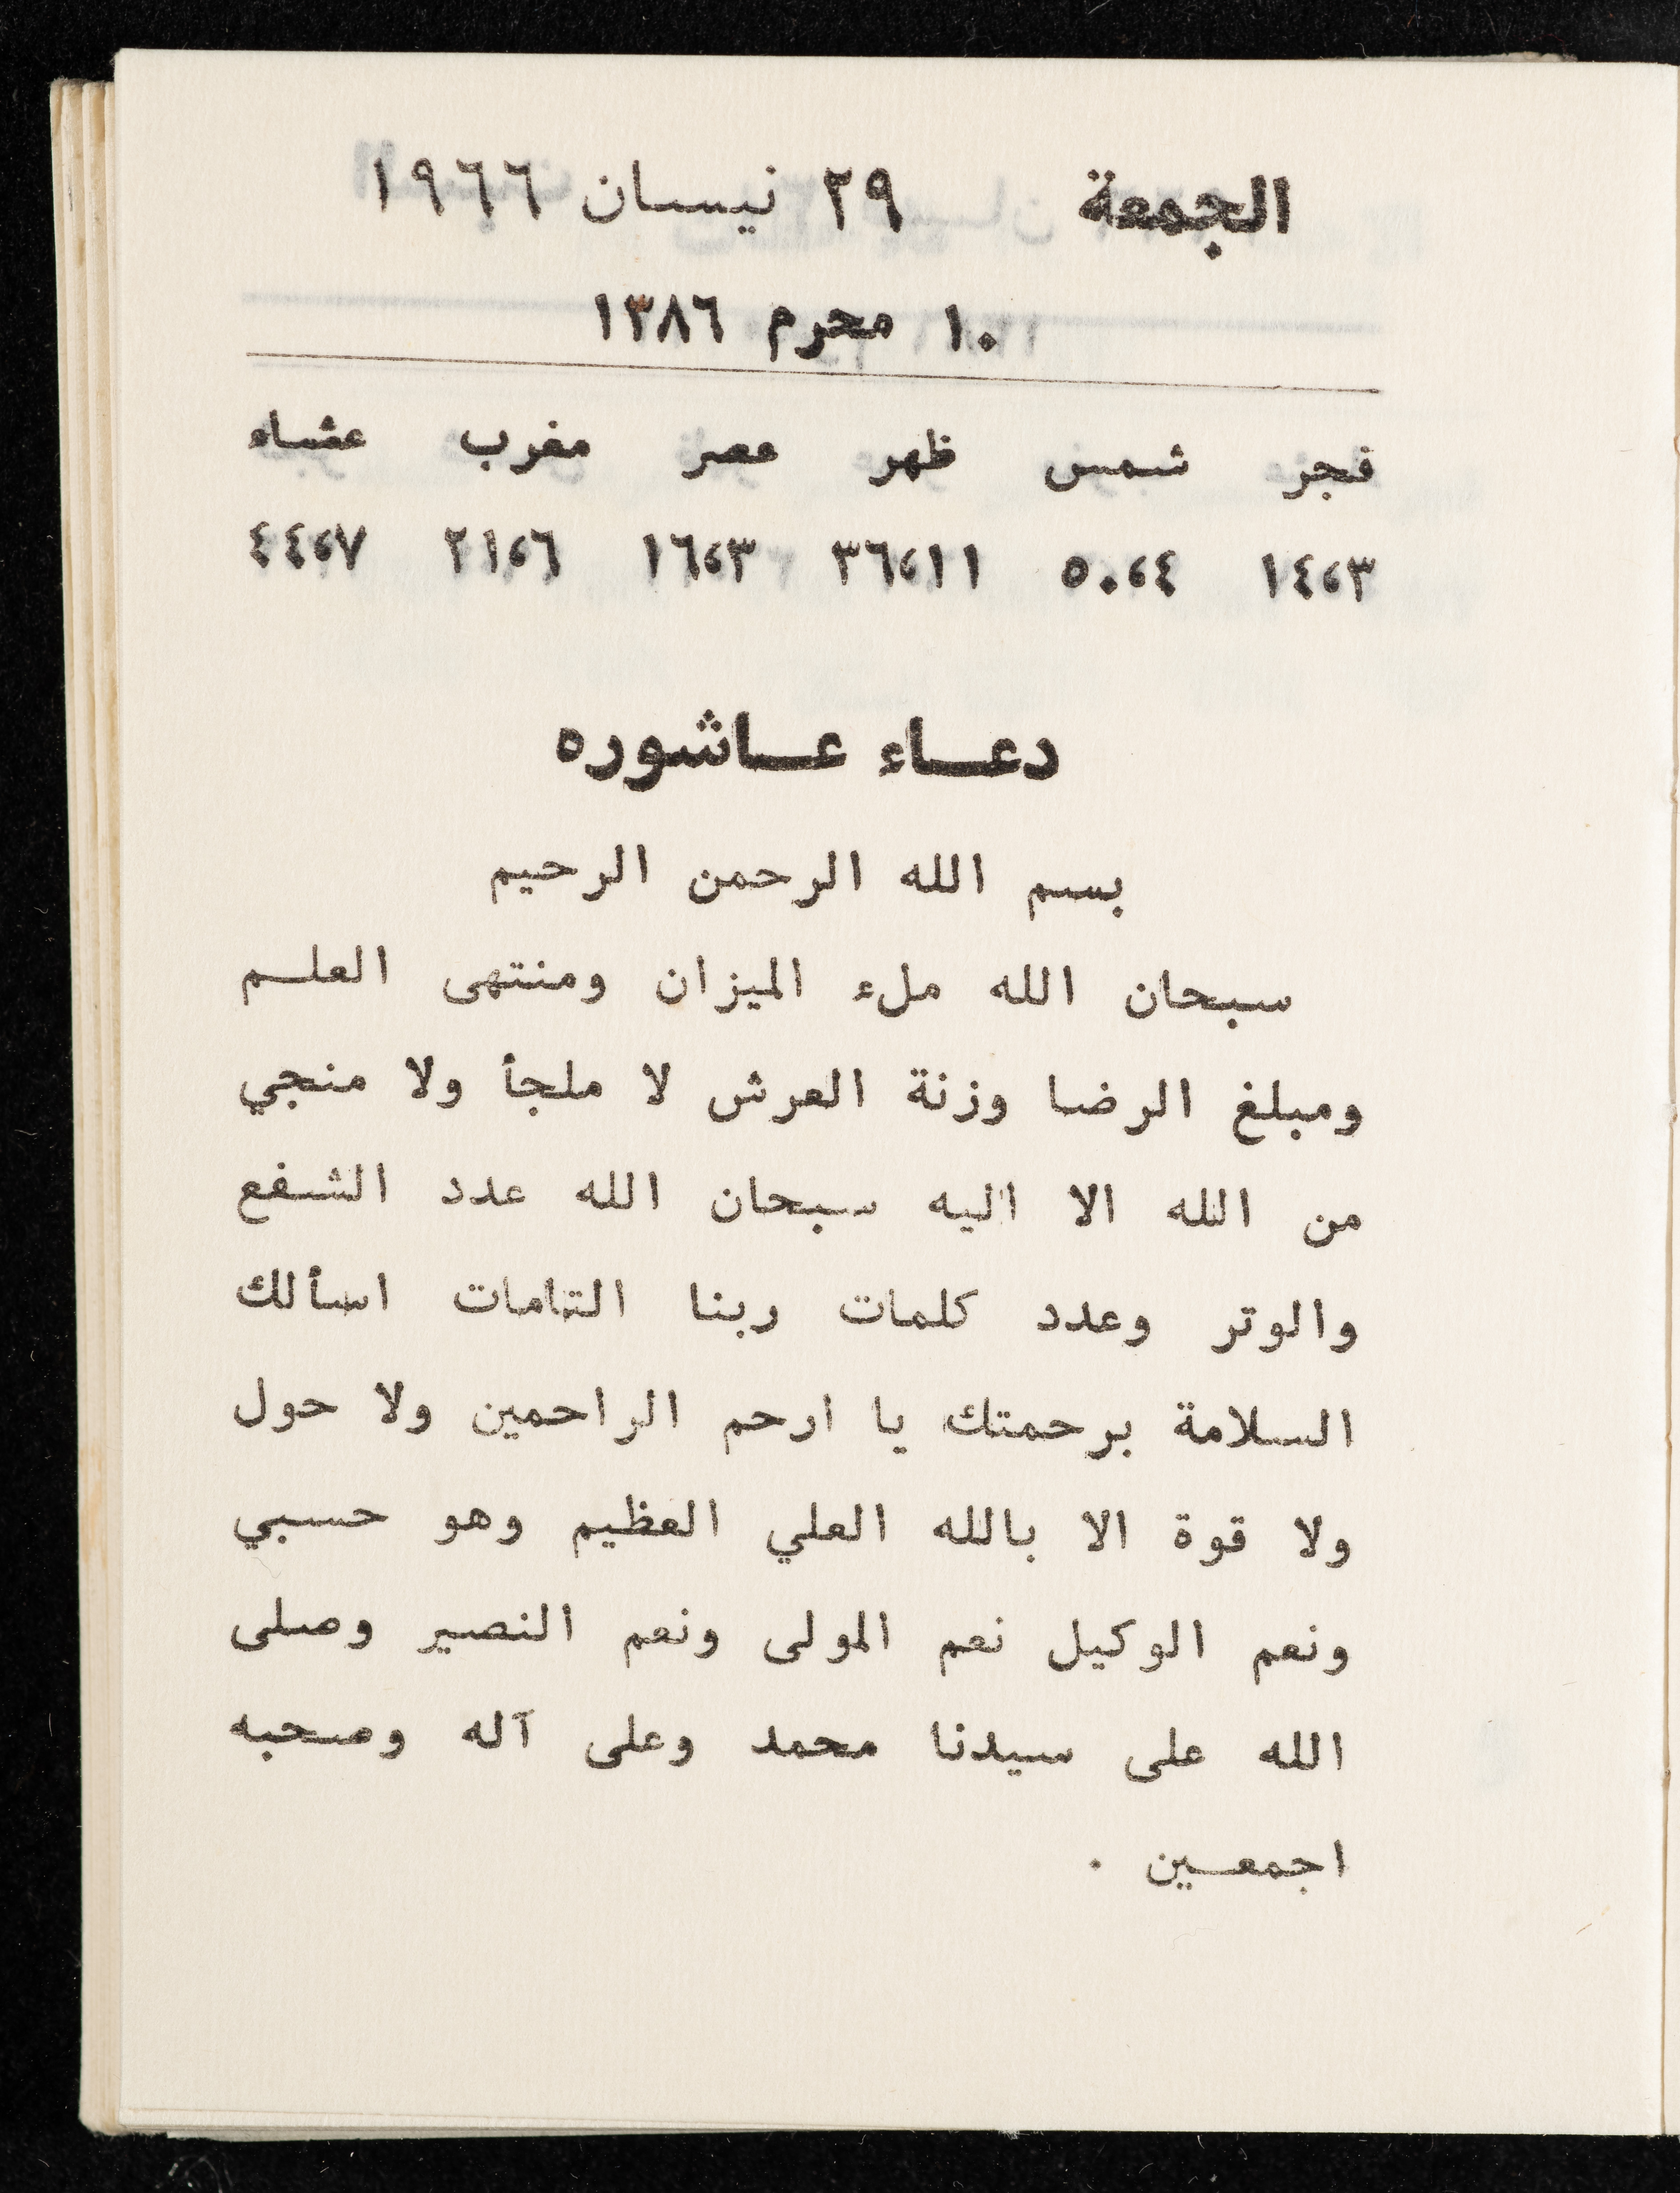 الجمعة ٢٩ نيسان ١٩٦٦
١٠ محرم ١٣٨٦
فجر شمس ظهر عصر مغرب عشاء
١٤،٣ ٥٠،٤ ٣٦،١١ ١٦،٣ ٢١،٦ ٤٤،٧
دعـــاء عـــاشوره
بسم الله الرحمن الرحيم
سبحان الله ملء الميزان ومنتهى العلــم
ومبلغ الرضا وزنة العرش لا ملجأ ولا منجي
من الله الا اليه سبحان الله عدد الشفع
والوتر وعدد كلمات ربنا التامات اسألك
السلامة برحمتك يا ارحم الراحمين ولا حول
ولا قوة الا بالله العلي العظيم وهو حسبي
ونعم الوكيل نعم المولى ونعم النصير وصلى
الله على سيدنا محمد وعلى آله وصحبه
اجمعــين .